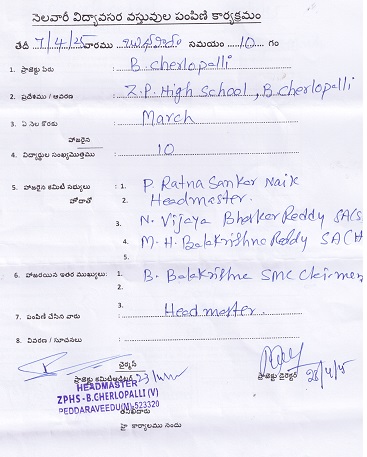 నెలవారీ విద్యావసర వస్తువుల పంపిణి కార్యక్రమం
తేదీ 7/4/25 వారము సమయం 10 గం
1. ప్రాజెక్టు పేరు : B. cherlopalli
2. ప్రదేశము / ఆవరణ : Z.P. High School, B. Cherlopalli
3. ఏ నెల కొరకు : March
హాజరైన
4. విద్యార్థుల సంఖ్యమొత్తము : 10
5. హాజరైన కమిటి సభ్యులు : 1. P. Ratna Sankar Naik
హోదాతో 2. Headmaster.
3. N. Vijaya Bhaskar Reddy SA(S
4. M. H. Balakrishna Reddy SA(H
5.
6. హాజరయిన ఇతర ముఖ్యులు: 1. B. Balakrishna SMC Chairmen
2.
3.
7. పంపిణి చేసిన వారు : Head master.
8. వివరణ / సూచనలు :
చైర్మన్
ప్రాజెక్టు డైరెక్టర్ 28/4/5
HEADMASTER
ZPHS - B.CHERLOPALLI (V)
PEDDARAVEEDU(M)-523320
హై కార్యాలము నందు